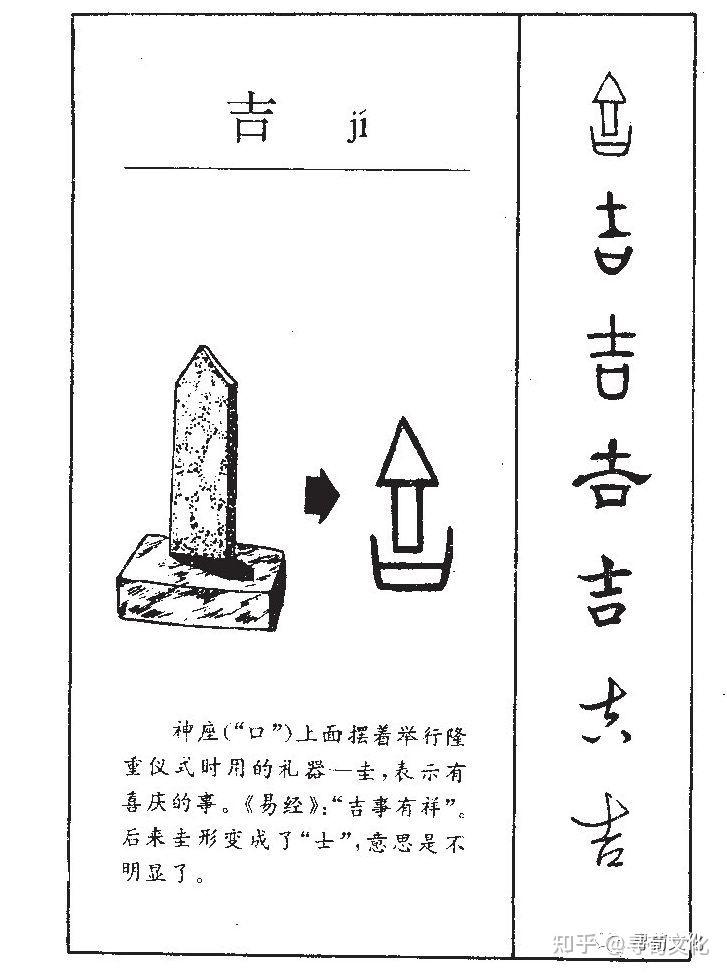 吉 jí
神座(“口”)上面摆着举行隆
重仪式时用的礼器—圭,表示有
喜庆的事。《易经》:“吉事有祥”。
后来圭形变成了“士”,意思是不
明显了。
吉
吉
吉
吉
吉
吉
吉
知乎 @寻荀文化